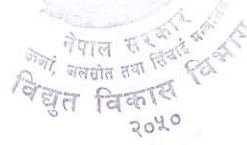 नेपाल सरकार
ऊर्जा, जलस्रोत तथा सिंचाई मन्त्रालय
विद्युत विकास विभाग
२०५०